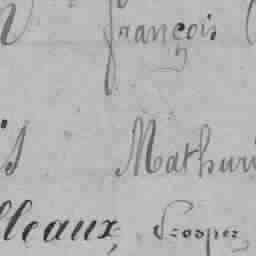 françois
Mathuri
lleaux, Prosper